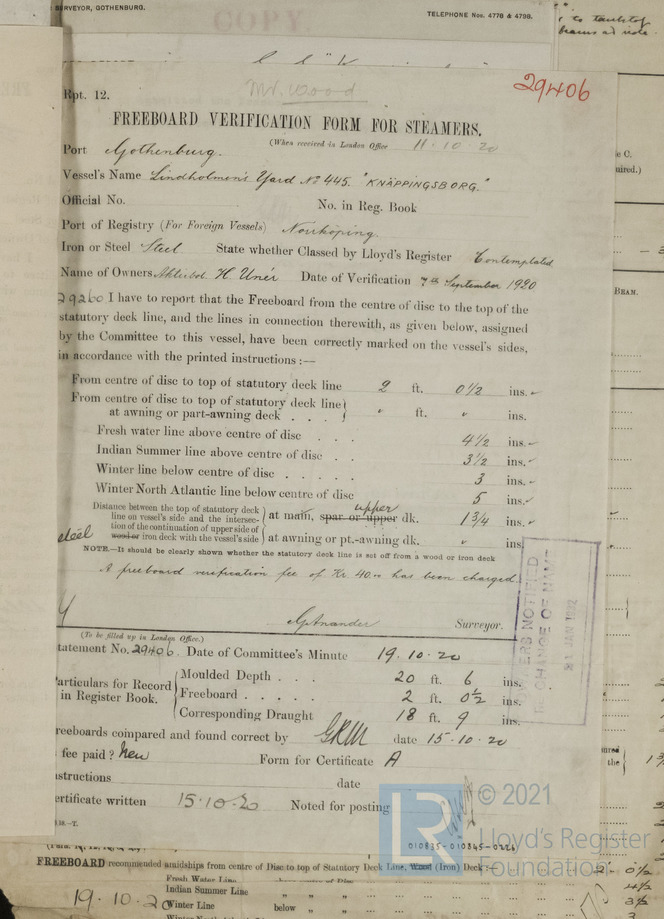 SURVEYOR, GOTHENBURG.
COPY
TELEPHONE Nos. 4778 & 4798.
Mr. Wood
29406
Rpt. 12.
FREEBOARD VERIFICATION FORM FOR STEAMERS.
(When received in London Office 11.10.20
Port Gothenburg.
Vessel's Name Lindholmen's Yard No 445. "KNÄPPINGSBORG."
Official No. No. in Reg. Book
Port of Registry (For Foreign Vessels) Norrköping.
Iron or Steel Steel State whether Classed by Lloyd's Register Contemplated
Name of Owners Aktiebol. H. Unér Date of Verification 7th September 1920
29260 I have to report that the Freeboard from the centre of disc to the top of the
statutory deck line, and the lines in connection therewith, as given below, assigned
by the Committee to this vessel, have been correctly marked on the vessel's sides,
in accordance with the printed instructions:—
From centre of disc to top of statutory deck line 2 ft. 0½ ins.
From centre of disc to top of statutory deck line
at awning or part-awning deck . . . " ft. " ins.
Fresh water line above centre of disc . . . 4½ ins.
Indian Summer line above centre of disc . . 3½ ins.
Winter line below centre of disc . . . . . 3 ins.
Winter North Atlantic line below centre of disc 5 ins.
Distance between the top of statutory deck
line on vessel's side and the intersec-
tion of the continuation of upper side of
steel wood or iron deck with the vessel's side
upper
at main, spar or upper dk. 1¾ ins.
at awning or pt.-awning dk. " ins.
NOTE.—It should be clearly shown whether the statutory deck line is set off from a wood or iron deck
A freeboard verification fee of Kr 40.00 has been charged.
Surveyor.
(To be filled up in London Office.)
tatement No. 29406. Date of Committee's Minute 19.10.20
articulars for Record
in Register Book.
Moulded Depth . . . 20 ft. 6 ins.
Freeboard . . . . . 2 ft. 0½ ins.
Corresponding Draught 18 ft. 9 ins.
reeboards compared and found correct by GRM date 15.10.20
fee paid? New Form for Certificate A
nstructions date
ertificate written 15.10.20 Noted for posting
CHANGE OF NAME
© 2021
LR
Lloyd's Register
Foundation
010835-010845-0226
FREEBOARD recommended amidships from centre of Disc to top of Statutory Deck Line, Wood (Iron) Deck:—
2 - 0½
Fresh Water Line
4½
Indian Summer Line
3½
19.10.20
Winter Line below " "
3
BEAM.